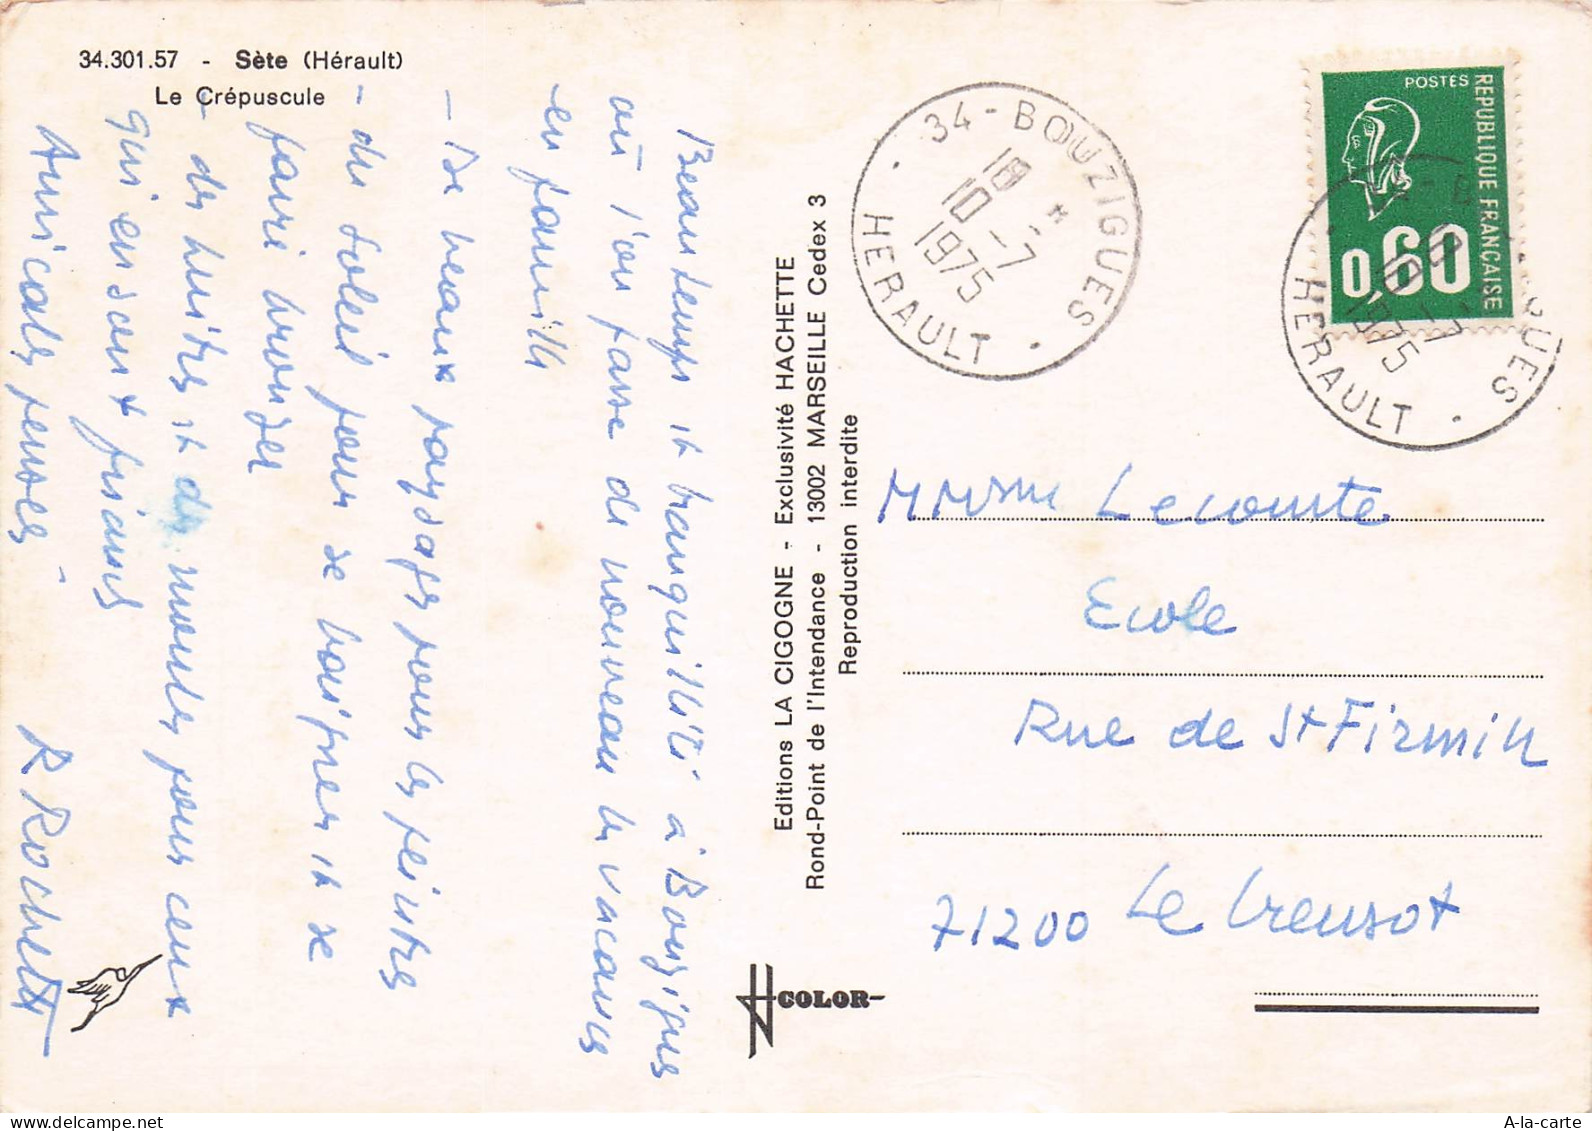 34.301.57 - Sète (Hérault)
Le Crépuscule
Beau temps et tranquillité à Bouzigues
où l'on passe de nouveau les vacances
en famille
- De beaux paysages pour les peintres
- du soleil pour se baigner et se
faire bronzer
- des huitres et des moules pour ceux
qui en sont friands
Amicales pensées -
R Rochette
Editions LA CIGOGNE - Exclusivité HACHETTE
Rond-Point de l'Intendance - 13002 MARSEILLE Cedex 3
Reproduction interdite
COLOR
34 - BOUZIGUES
18 *
10 - 7
1975
HERAULT
POSTES
REPUBLIQUE FRANÇAISE
0,60
1975
HERAULT
M Mme Lecomte
Ecole
Rue de St Firmin
71200 Le Creusot
A-la-carte